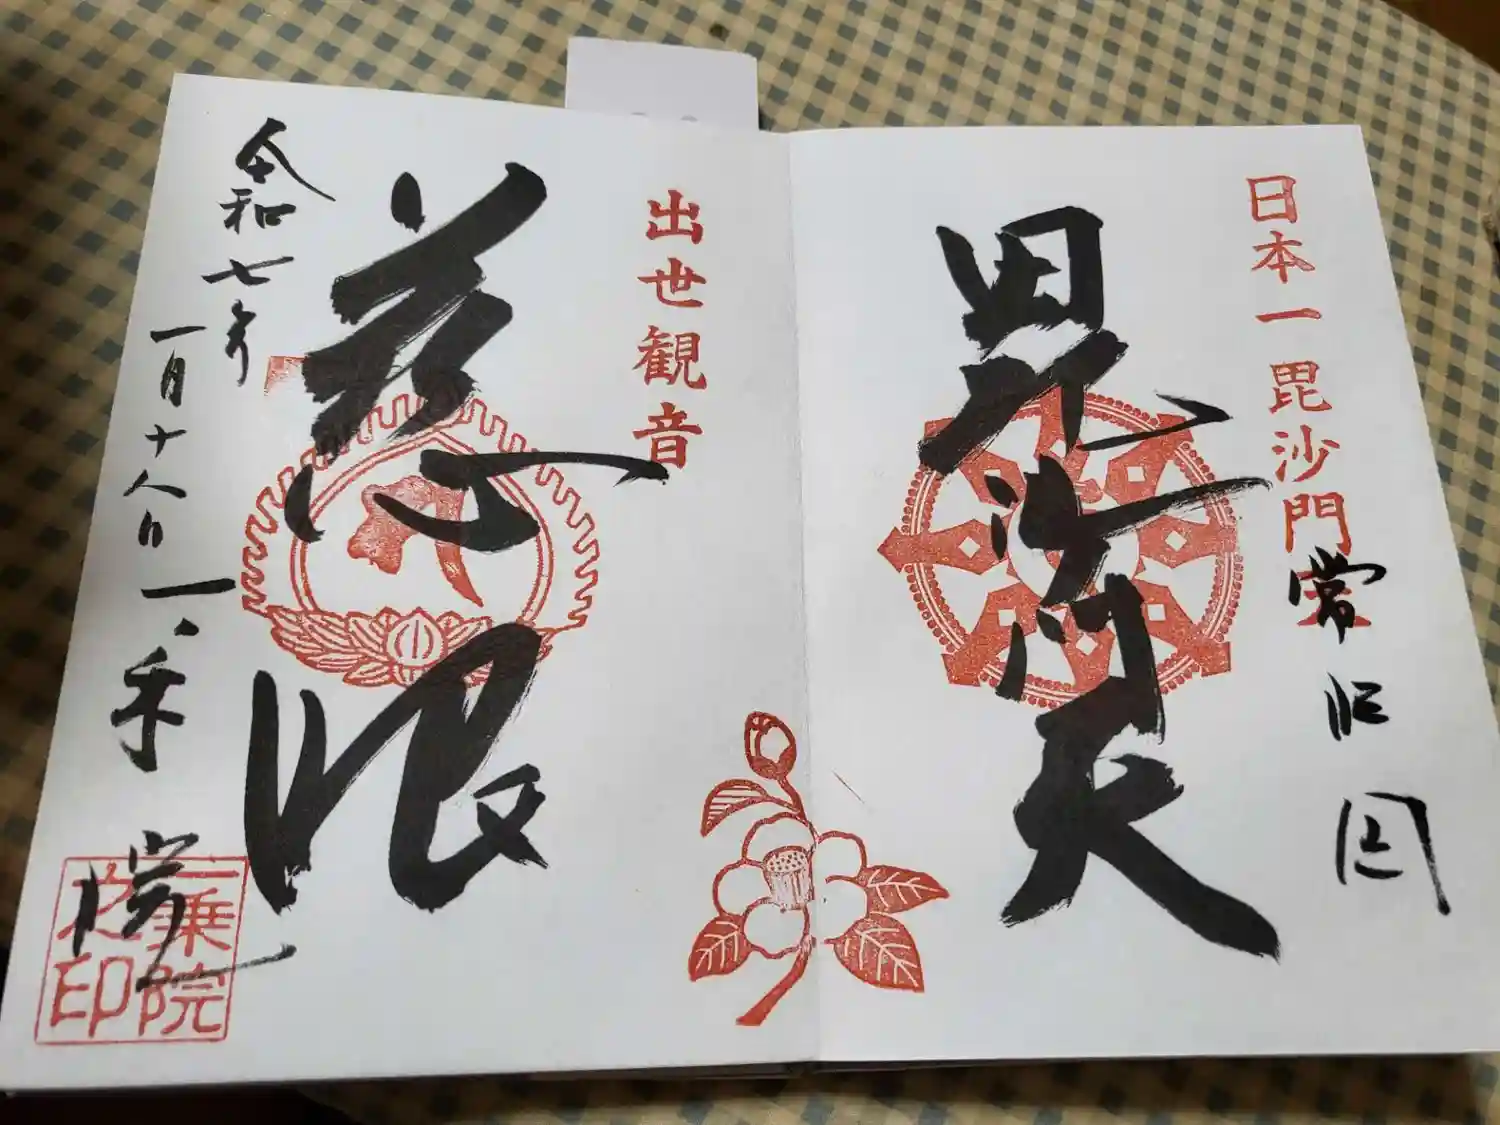 日本一毘沙門天
常陸国
毘沙門天
出世観音
慈眼
令和七年
一月十八日
一乗院
一乗院之印